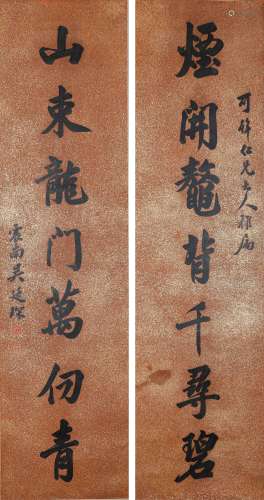 煙開鼇背千尋碧
可 仁兄大人雅屬
山束龍門萬仞青
雲南吳廷琛